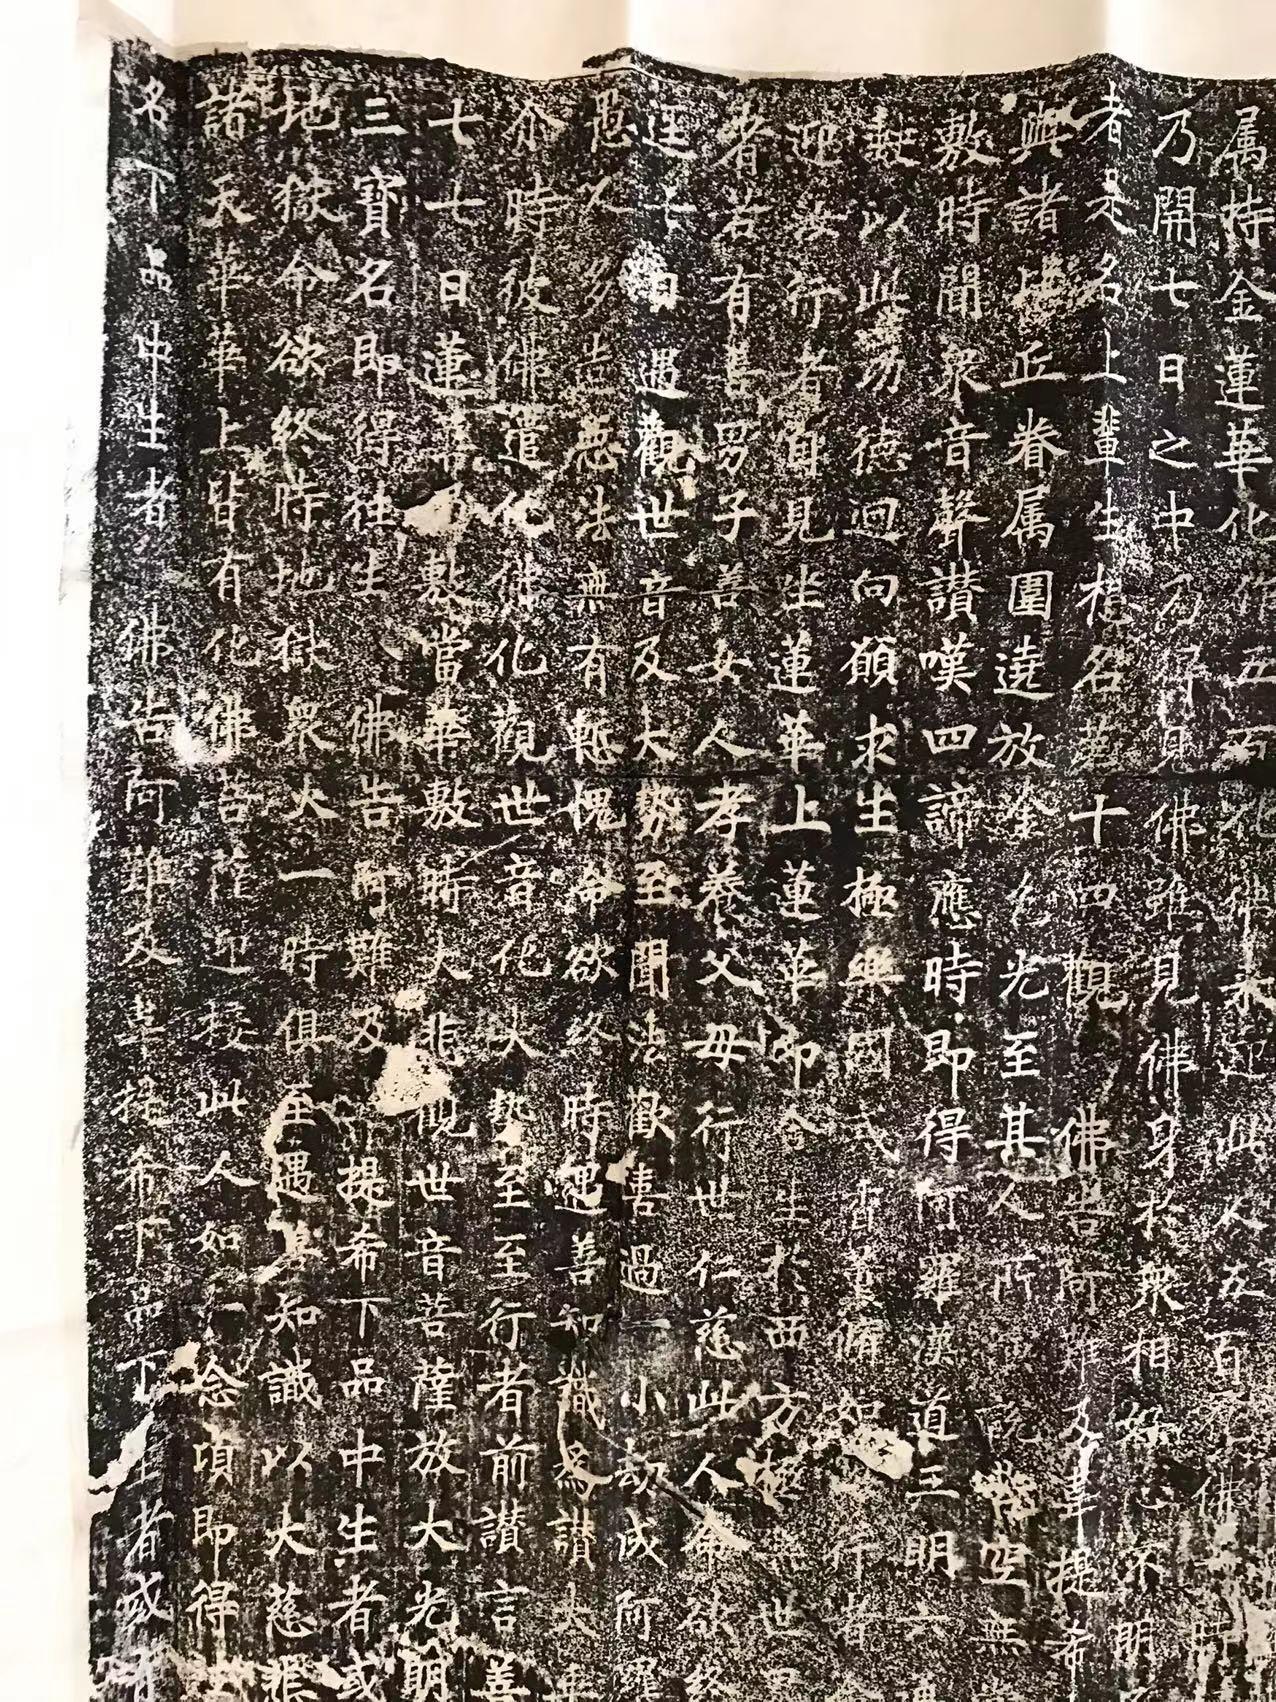 属持金蓮華化作五百化佛來迎此人五百化佛一時
乃開七日之中乃得見佛雖見佛身於衆相好心不明
者是名上輩生想名苐十四觀 佛告阿難及韋提希
與諸比丘眷属圍遶放金色光至其人所說苦空無
敷時聞衆音聲讃嘆四諦應時即得阿羅漢道三明六
數以此功德迴向願求生極樂國戒香薰脩如行者
迎汝行者自見坐蓮華上蓮華即合生於西方極世
者若有善男子善女人孝養父母行世仁慈此人命欲終
逕七日遇觀世音及大勢至聞法歡喜過一小劫成阿羅
愚人多造惡法無有慙愧命欲終時遇善知識爲讃大
尒時彼佛遣化佛化觀世音化大勢至至行者前讃言善
七七日蓮華乃敷當華敷時大悲觀世音菩薩放大光明
三寶名即得往生 佛告阿難及韋提希下品中生者或
地獄命欲終時地獄衆火一時俱至遇善知識以大慈悲
諸天華華上皆有化佛菩薩迎接此人如一念頃即得
名下品中生者 佛告阿難及韋提希下品下生者或有